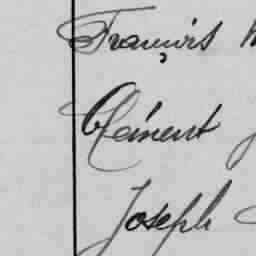 François
Clément
Joseph